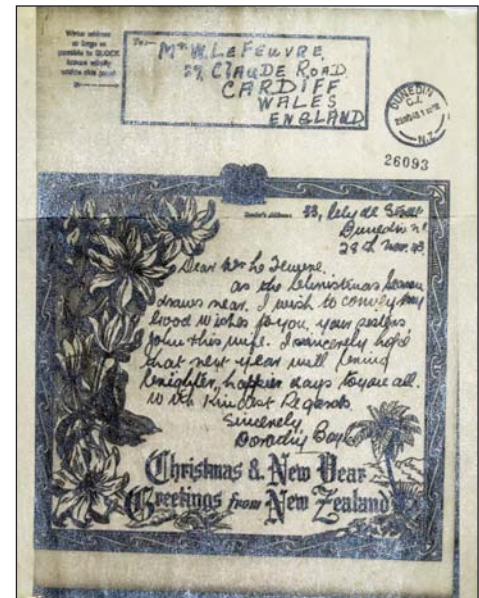 Write address
as large as
possible in BLOCK
letters wholly
within this panel
To:— Mr. W. LE FEUVRE
29, CLAUDE ROAD
CARDIFF
WALES
ENGLAND
DUNEDIN
N.Z.
26093
Sender's Address 33, Street
Dunedin N.
28th Nov. 43.
Dear Mr Le Feuvre,
as the Christmas Season
draws near. I wish to convey my
Good Wishes for you, your sisters
John & his wife. I sincerely hope
that next year will bring
brighter, happier days to you all.
With Kindest Regards.
Sincerely,
Christmas & New Year
Greetings from New Zealand